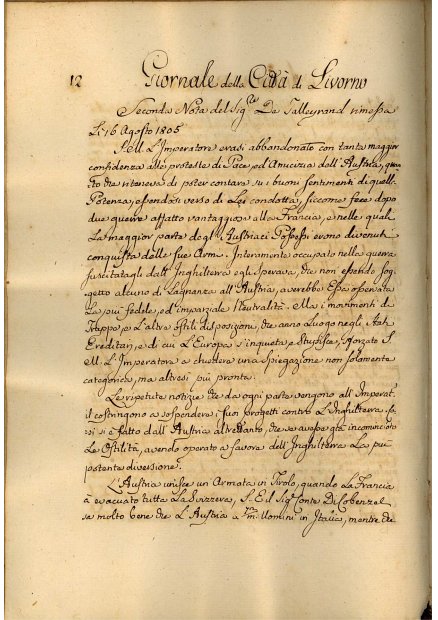 12 Giornale della Città di Livorno
Seconda Nota del Sigre De Talleyrand rimessa
Li 16 Agosto 1805
S. M. L'Imperatore erasi abbandonato con tanta maggior
confidenza alle proteste di Pace, ed Amicizia dell'Austria, quan
to che riteneva di poter contare su i buoni sentimenti di quella
Potenza, essendosi verso di Lei condotta, siccome fece dopo
due guerre affatto vantaggiose alla Francia, e nelle quali
La maggior parte degl'Austriaci Possessi erano divenuti
conquista delle sue Armi. Interamente occupato nella guerra
suscitatagli dall'Inghilterra egli sperava, che non essendo sog
getto alcuno di Lagnanza all'Austria, averebbe Essa osservata
La più fedele, ed imparziale Neutralità. Ma i movimenti di
Truppe, e L'altre ostili disposizioni, che anno Luogo negli Stati
Ereditari, e di cui L'Europa s'inquieta e Stupisce, sforzato S.
M. L'Imperatore a chiedere una spiegazione non solamente
categorica, ma altresì più pronta.
Le ripetute notizie che da ogni parte vengono all'Imperat.
il costringono a sospendere i suoi progetti contro L'Inghilterra.
si è fatto dall'Austria altrettanto, che se avesse già incominciato
Le Ostilità, avendo operato a favore dell'Inghilterra La più
potente diversione.
L'Austria unisce un Armata in Tirolo, quando La Francia
à evacuato tutta La Svizzera, S. E. il Sigr Conte Di Cobenzel
sa molto bene che L'Austria a Uomini in Italia, mentre che